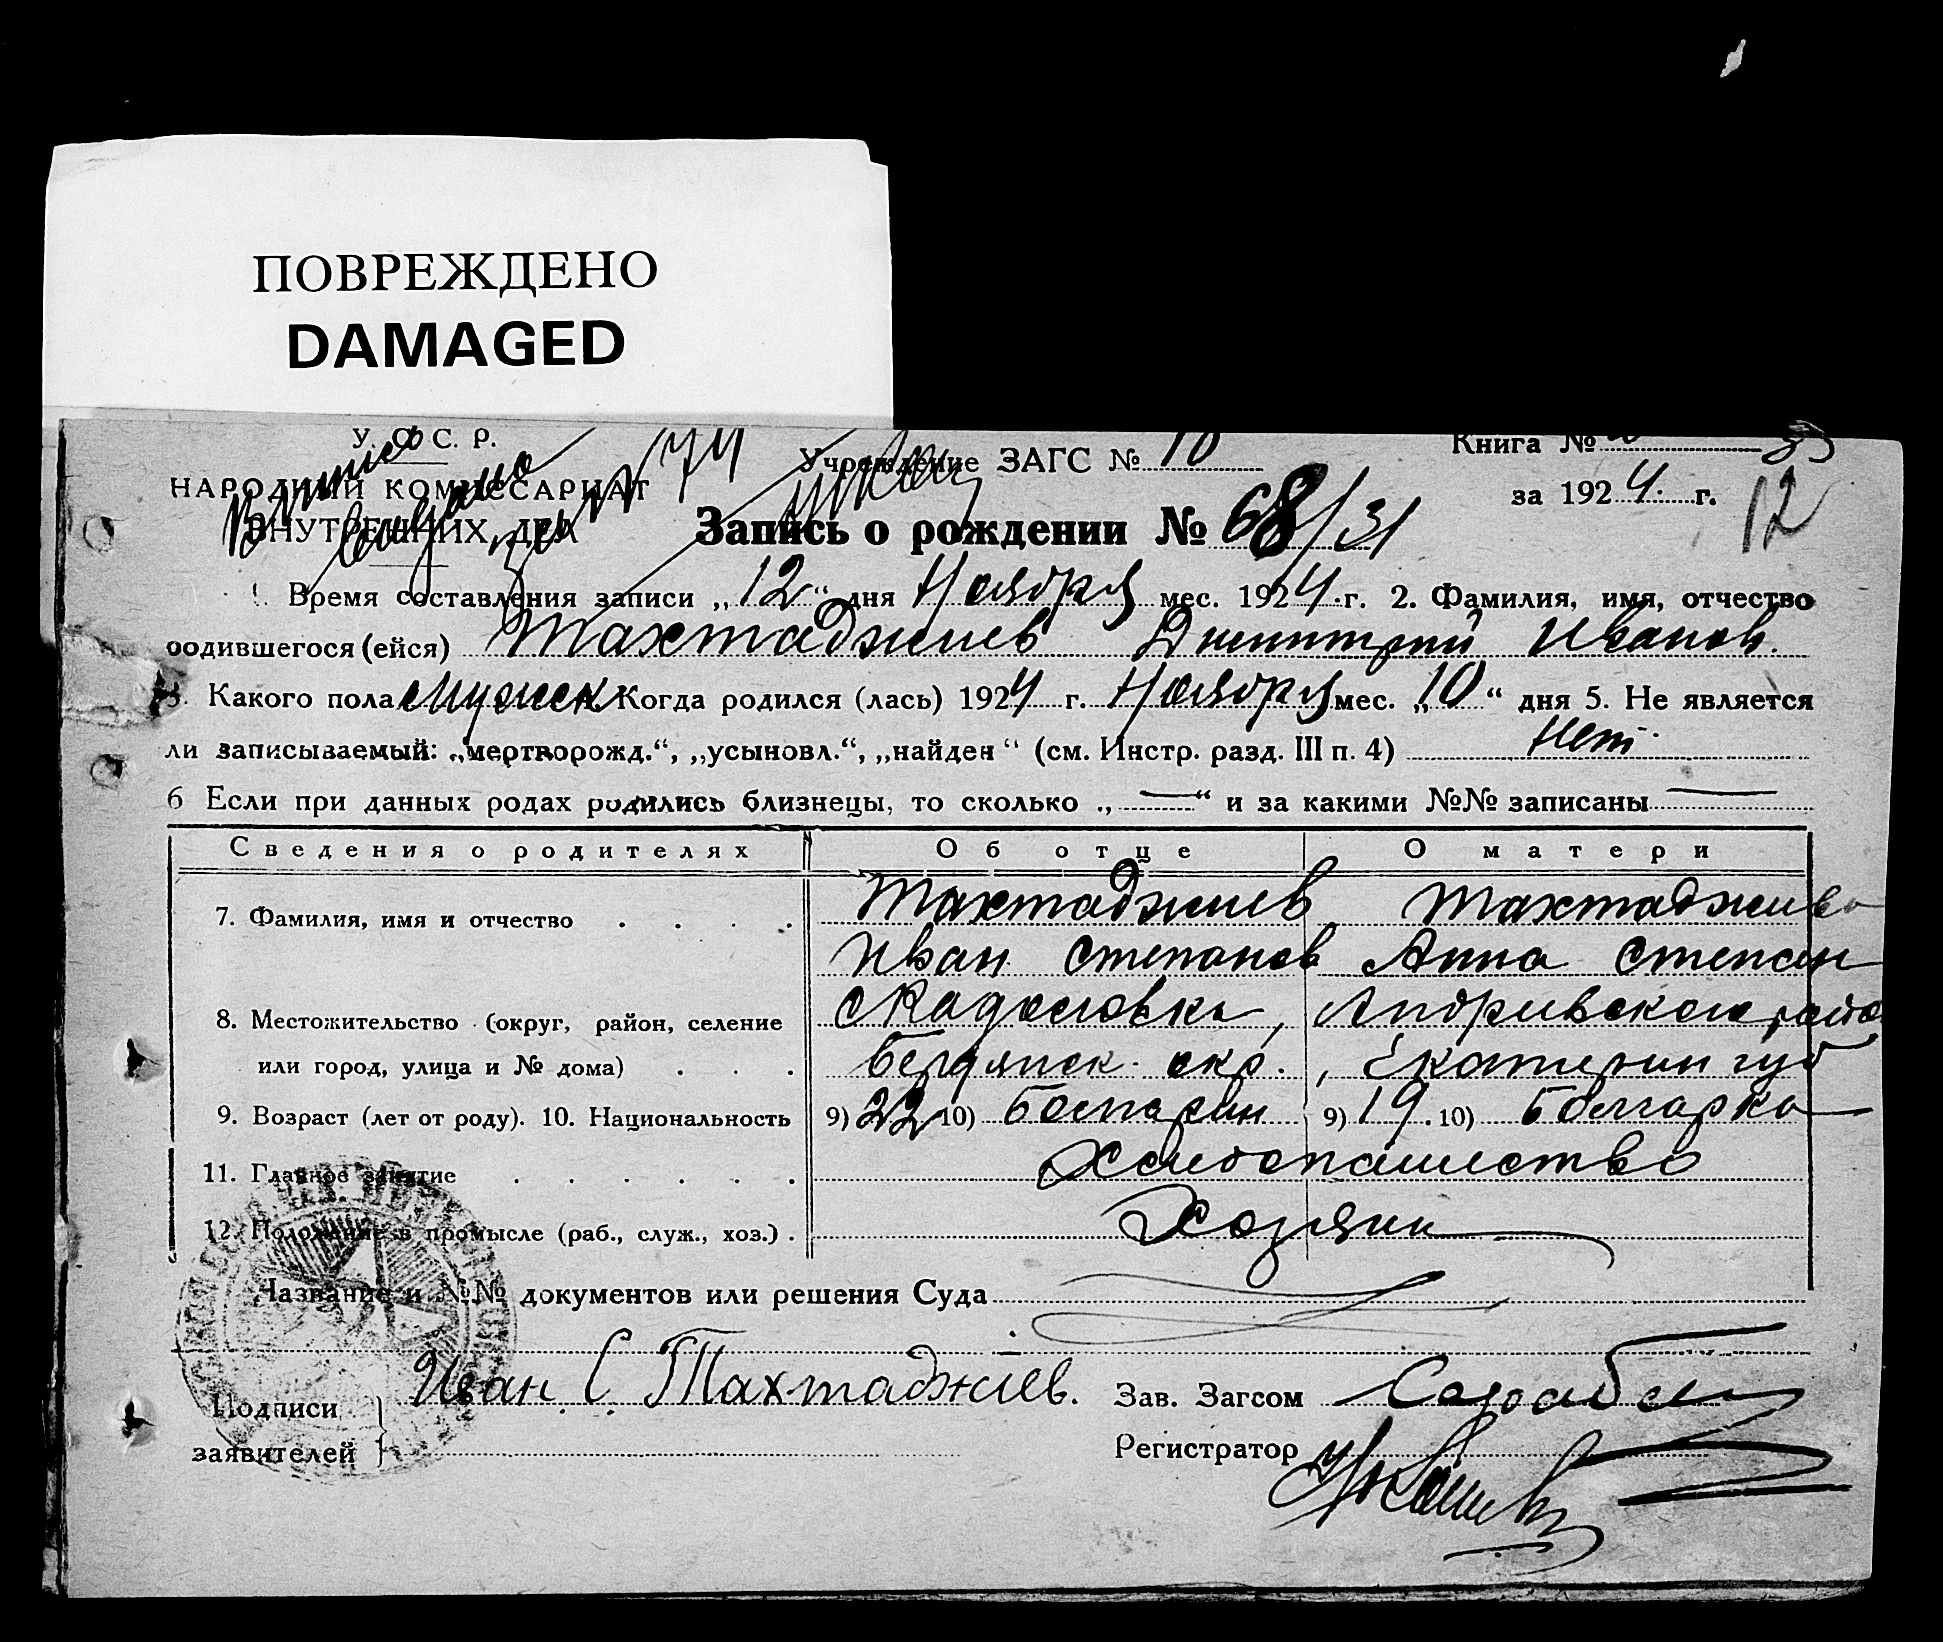 ПОВРЕЖДЕНО
DAMAGED
У. С. С. Р.
НАРОДНЫЙ КОМИССАРИАТ
ВНУТРЕННИХ ДЕЛ
Выпись выдана
Учреждение ЗАГС № 10
Книга №
за 1924 г.
12
Запись о рождении № 68/31
1. Время составления записи „12“ дня Ноября мес. 1924 г. 2. Фамилия, имя, отчество
родившегося (ейся) Тахтаджиев Димитрий Иванов.
3. Какого пола мужск 4. Когда родился (лась) 1924 г. Ноября мес. „10“ дня 5. Не является
ли записываемый: „мертворожд.“, „усыновл.“, „найден“ (см. Инстр. разд. III п. 4) Нет
6 Если при данных родах родились близнецы, то сколько „—“ и за какими №№ записаны —
Сведения о родителях Об отце О матери
7. Фамилия, имя и отчество Тахтаджиев Тахтаджиева
Иван Степанов Анна Степан
8. Местожительство (округ, район, селение
или город, улица и № дома) Бердянск. окр., Екатерин губ
9. Возраст (лет от роду). 10. Национальность 9) 22 10) Болгарин 9) 19. 10) Болгарка
11. Главное занятие Хлебопашество
12. Положение в промысле (раб., служ., хоз.) Хозяин
Название и №№ документов или решения Суда
Подписи заявителей Иван С Тахтаджиев.
Зав. Загсом
Регистратор